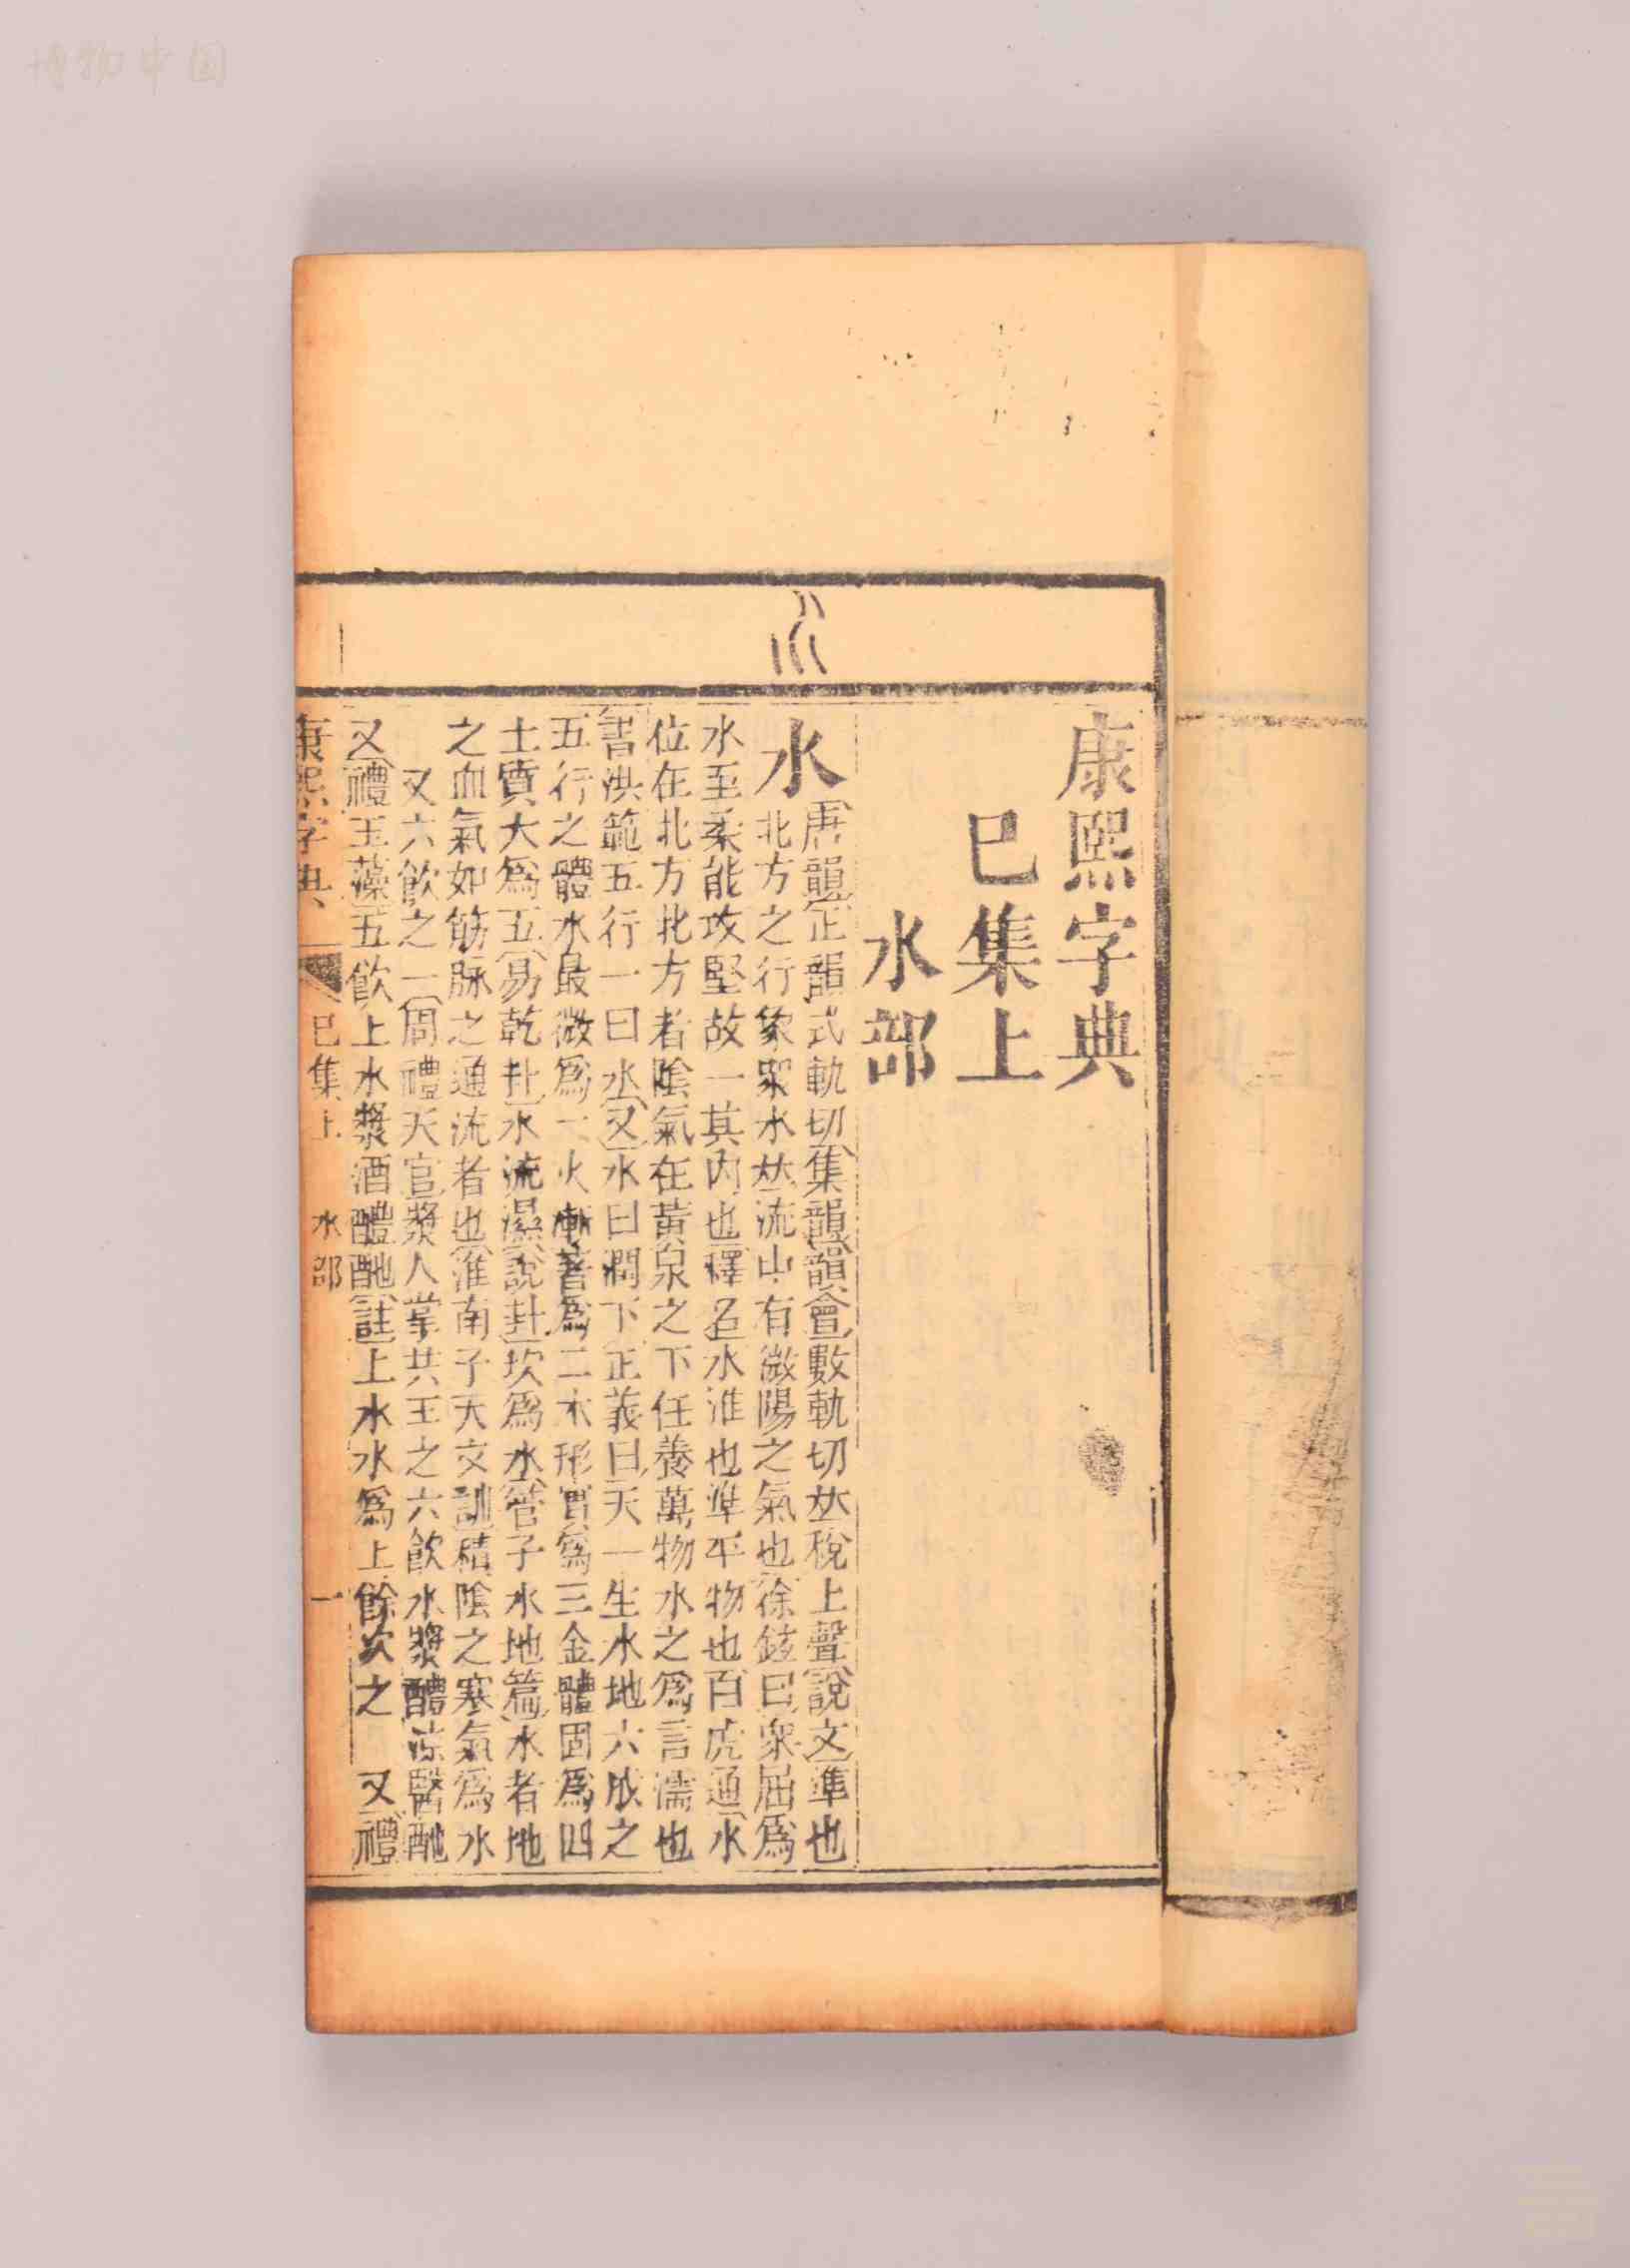 博物中国
康熙字典
巳集上
水部
水
唐韻正韻式軌切集韻韻會數軌切𠀤稅上聲說文準也
北方之行象衆水𠀤流中有微陽之氣也徐鉉曰衆屈爲
水至柔能攻堅故一其內也釋名水準也準平物也白虎通水
位在北方北方者陰氣在黃泉之下任養萬物水之爲言濡也
書洪範五行一曰水又水曰潤下正義曰天一生水地六成之
五行之體水最微爲一火漸著爲二木形實爲三金體固爲四
土質大爲五易乾卦水流濕說卦坎爲水管子水地篇水者地
之血氣如筋脉之通流者也淮南子天文訓積陰之寒氣爲水
又六飮之一周禮天官漿人掌共王之六飮水漿醴涼醫酏
又禮玉藻五飮上水漿酒醴酏註上水水爲上餘次之 又禮
康熙字典 巳集上 水部 一